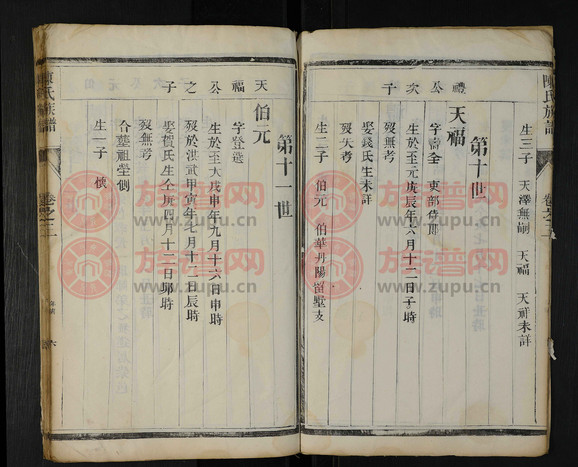 陳氏族譜
卷之二
生三子 天澤無嗣 天福 天祥未詳
第十世
禮公次子
天福
字壽全 吏部侍郎
生於至元庚辰年六月十二日子時
歿無考
娶錢氏生未詳
歿失考
生二子 伯元 伯華丹陽留墅支
第十一世
天福公之子
伯元
字登選
生於至大戊申年九月十六日申時
歿於洪武甲寅年七月十二日辰時
娶賀氏生仝庚四月十二日卯時
歿無考
合墓祖塋側
生一子 懷
陳氏族譜
卷之二
六
族譜网
www.zupu.cn
族譜网
www.zupu.cn
族譜网
www.zupu.cn
族譜网
www.zupu.cn